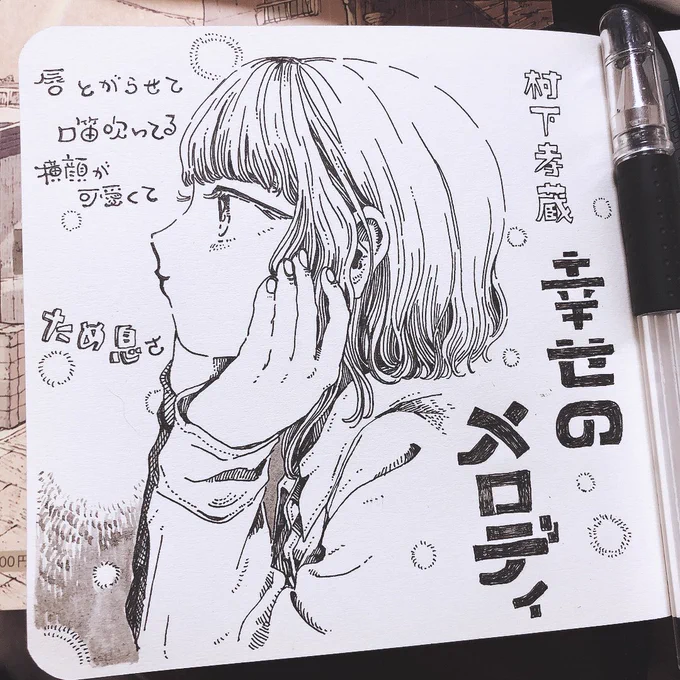 唇とがらせて
口笛吹いてる
横顔が
可愛くて
ため息さ
村下孝蔵
幸せの
メロディ
00円